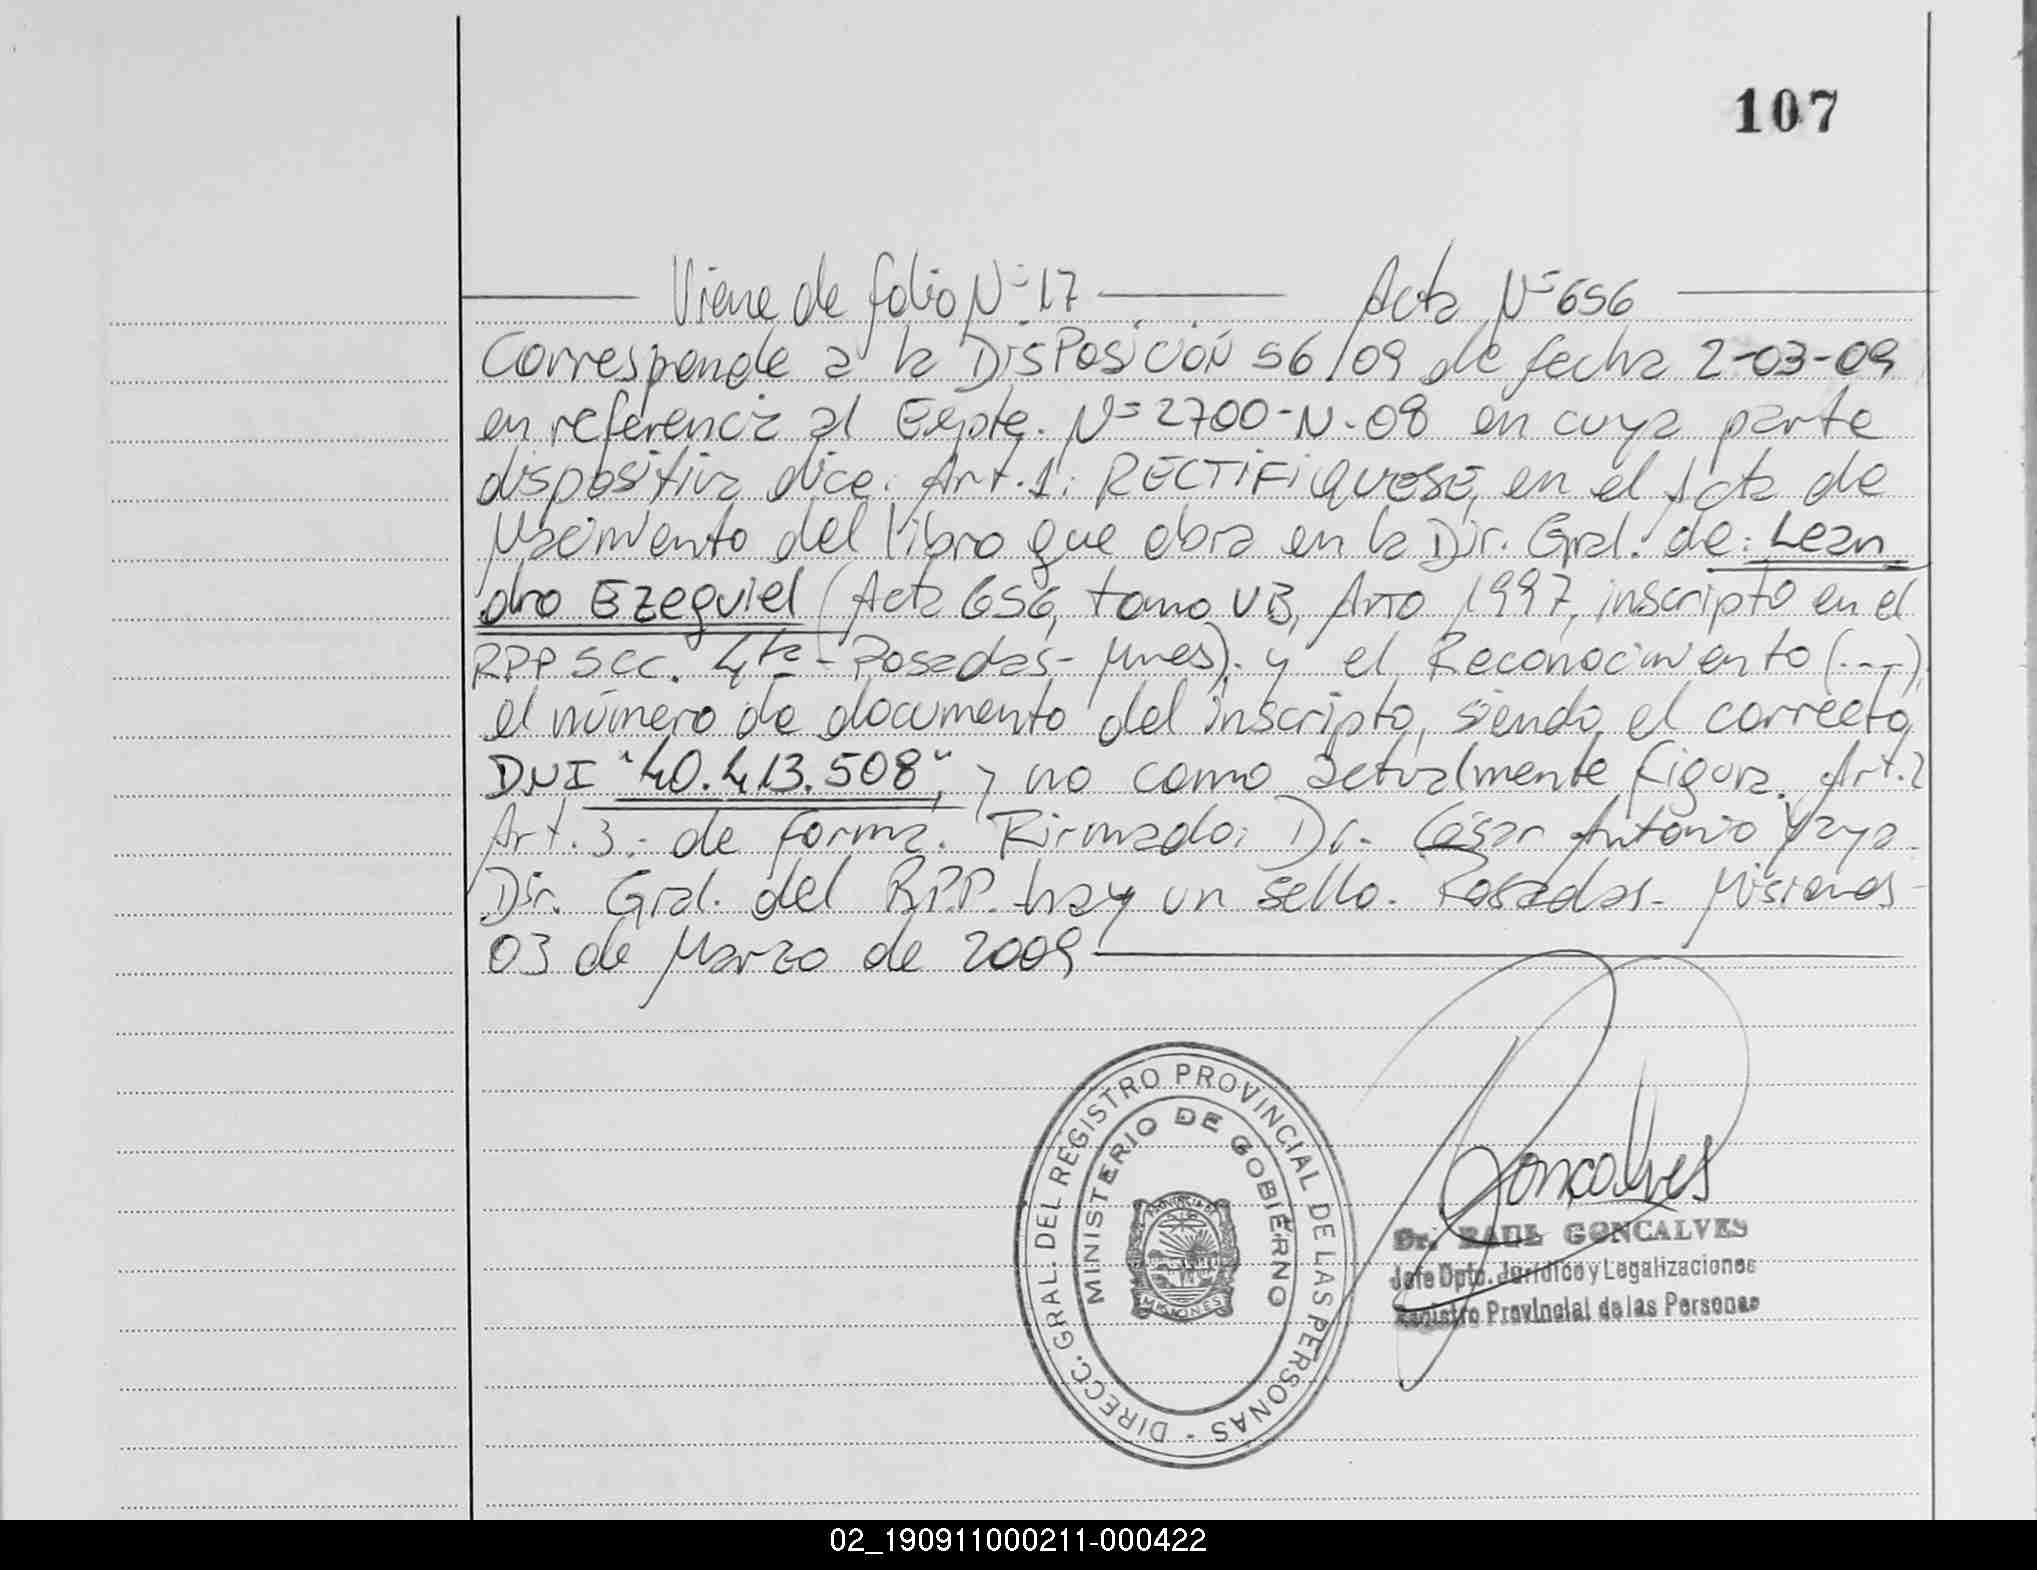 107
Viene de folio Nº 17 Acta Nº 656
Corresponde a la DISPOSICIÓN 56/09 de fecha 2-03-09
en referencia al Expte. Nº 2700-N-08 en cuya parte
dispositiva dice: Art. 1: RECTIFIQUESE, en el Acta de
Nacimiento del libro que obra en la Dir. Gral. de: Lean
dro Ezequiel (Acta 656, tomo VB, Año 1997, inscripto en el
RPP SCC. 4ta - Posadas - Mnes). y el Reconocimiento (...),
el número de documento del inscripto, siendo el correcto
DNI "40.413.508", y no como actualmente figura. Art. 2
Art. 3: de forma. Firmado: Dr. César Antonio Yaya
Dir. Gral. del R.P.P. hay un sello. Posadas - Misiones -
03 de Marzo de 2009
DIRECC. GRAL. DEL REGISTRO PROVINCIAL DE LAS PERSONAS -
MINISTERIO DE GOBIERNO
PROVINCIA DE
MISIONES
Goncalves
Dr. RAUL GONCALVES
Jefe Dpto. Jurídico y Legalizaciones
Registro Provincial de las Personas
02_190911000211-000422